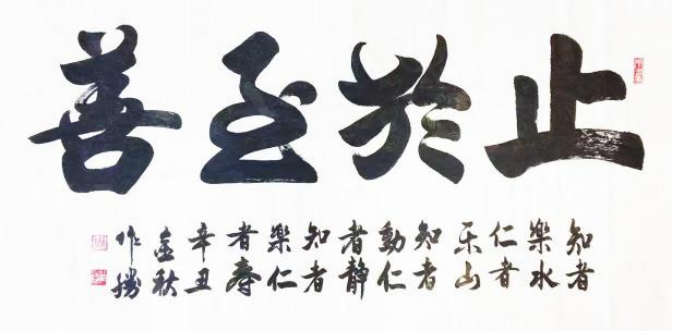 止於至善
知者
樂水
仁者
乐山
知者
動仁
者静
知者
樂仁
者壽
辛丑
金秋
作勝